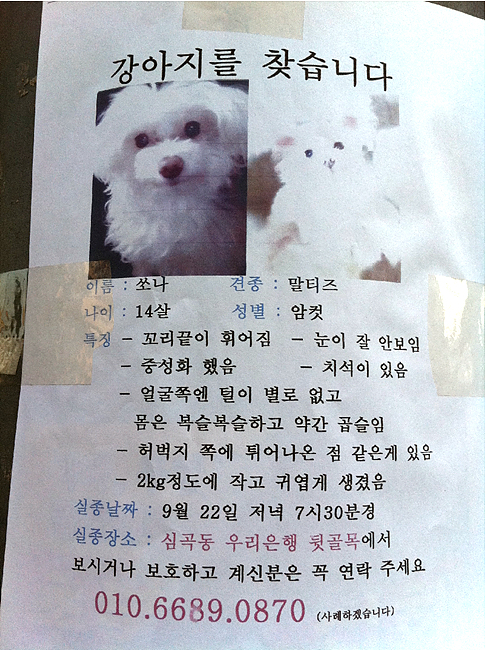 강아지를 찾습니다
이름 : 쏘나 견종 : 말티즈
나이 : 14살 성별 : 암컷
특징 - 꼬리끝이 휘어짐 - 눈이 잘 안보임
- 중성화 했음 - 치석이 있음
- 얼굴쪽엔 털이 별로 없고
몸은 복슬복슬하고 약간 곱슬임
- 허벅지 쪽에 튀어나온 점 같은게 있음
- 2kg정도에 작고 귀엽게 생겼음
실종날짜 : 9월 22일 저녁 7시30분경
실종장소 : 심곡동 우리은행 뒷골목에서
보시거나 보호하고 계신분은 꼭 연락 주세요
010.6689.0870 (사례하겠습니다)